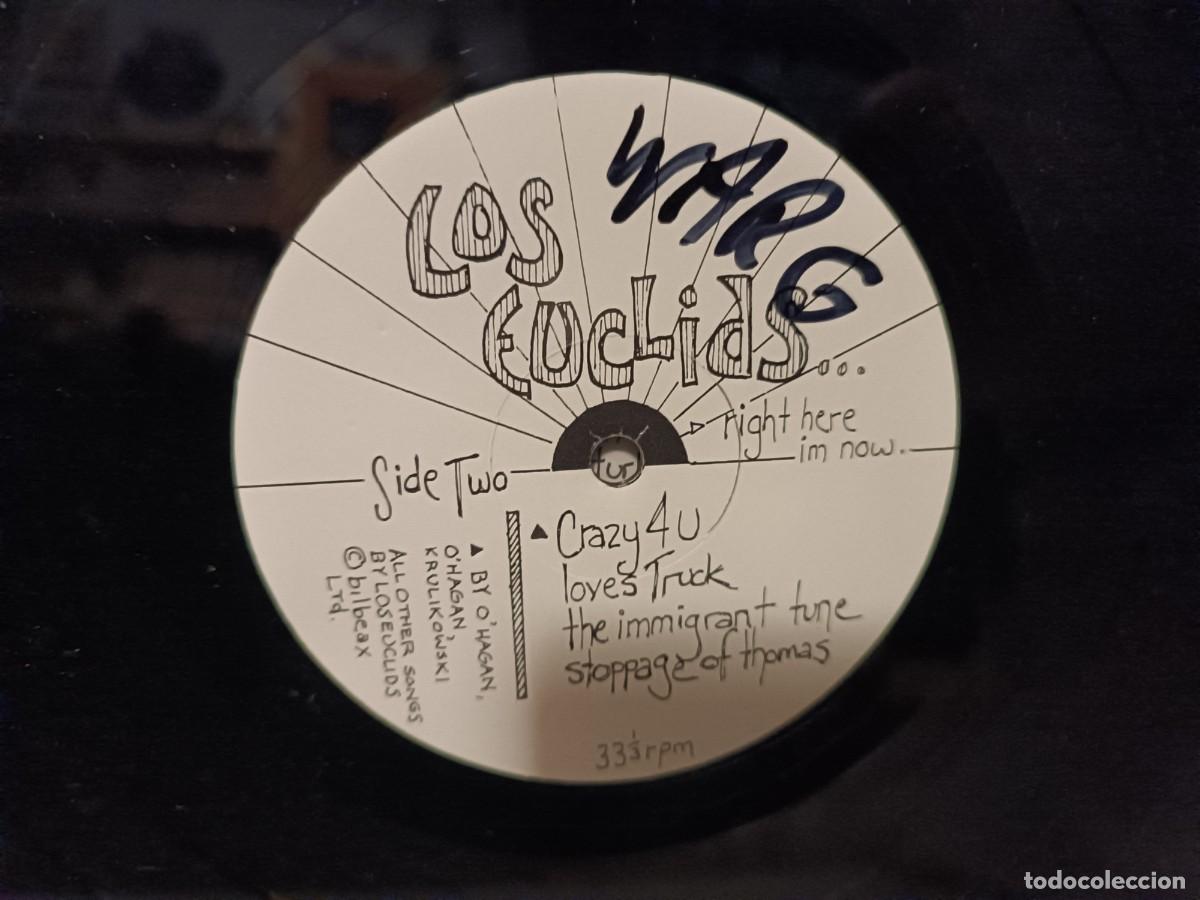 WARG
LOS
EUCLids...
right here
im now.
Side Two
fur
▲ Crazy 4 U
loves Truck
the immigrant tune
stoppage of thomas
▲ BY O'HAGAN,
O'HAGAN,
KRULIKOWSKI
ALL OTHER SONGS
BY LOS EUCLIDS
©bilbeax
LTd.
33⅓ rpm
todocoleccion